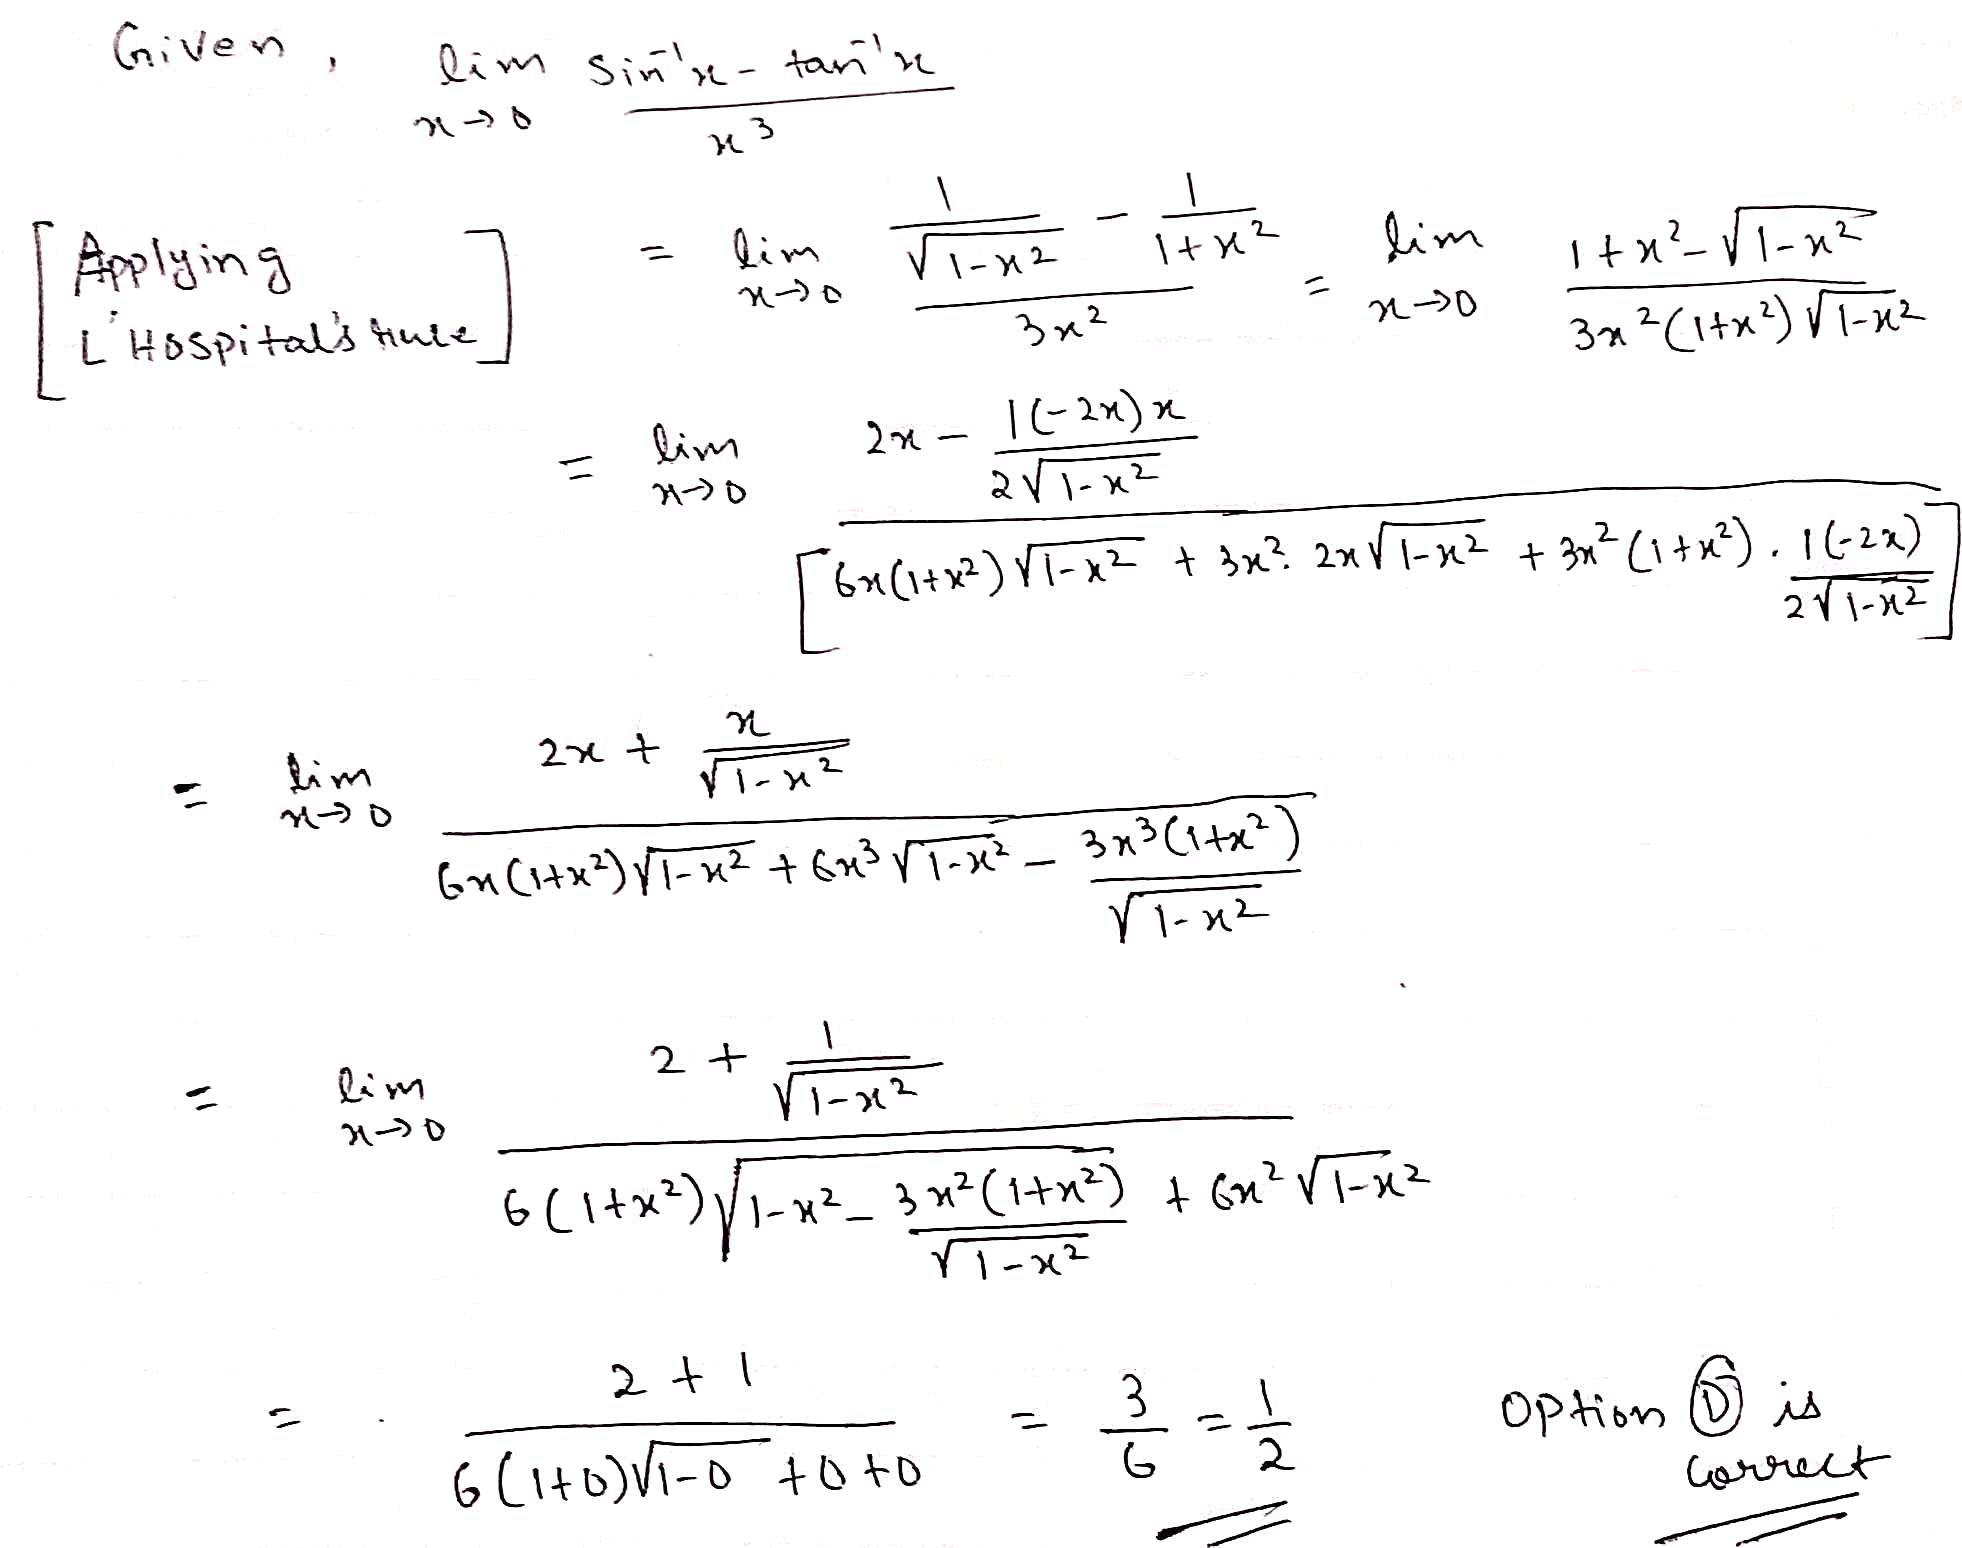 Given, lim x→0 (sin⁻¹x - tan⁻¹x)/x³
[Applying L'Hospital's rule] = lim x→0 (1/√(1-x²) - 1/(1+x²))/(3x²) = lim x→0 (1+x²-√(1-x²))/(3x²(1+x²)√(1-x²))
= lim x→0 (2x - 1(-2x)x/(2√(1-x²)))/[6x(1+x²)√(1-x²) + 3x². 2x√(1-x²) + 3x²(1+x²). 1(-2x)/(2√(1-x²))]
= lim x→0 (2x + x/√(1-x²))/(6x(1+x²)√(1-x²) + 6x³√(1-x²) - 3x³(1+x²)/√(1-x²))
= lim x→0 (2 + 1/√(1-x²))/(6(1+x²)√(1-x² - 3x²(1+x²)/√(1-x²)) + 6x²√(1-x²))
= (2+1)/(6(1+0)√(1-0) +0+0) = 3/6 = 1/2 Option Ⓓ is correct